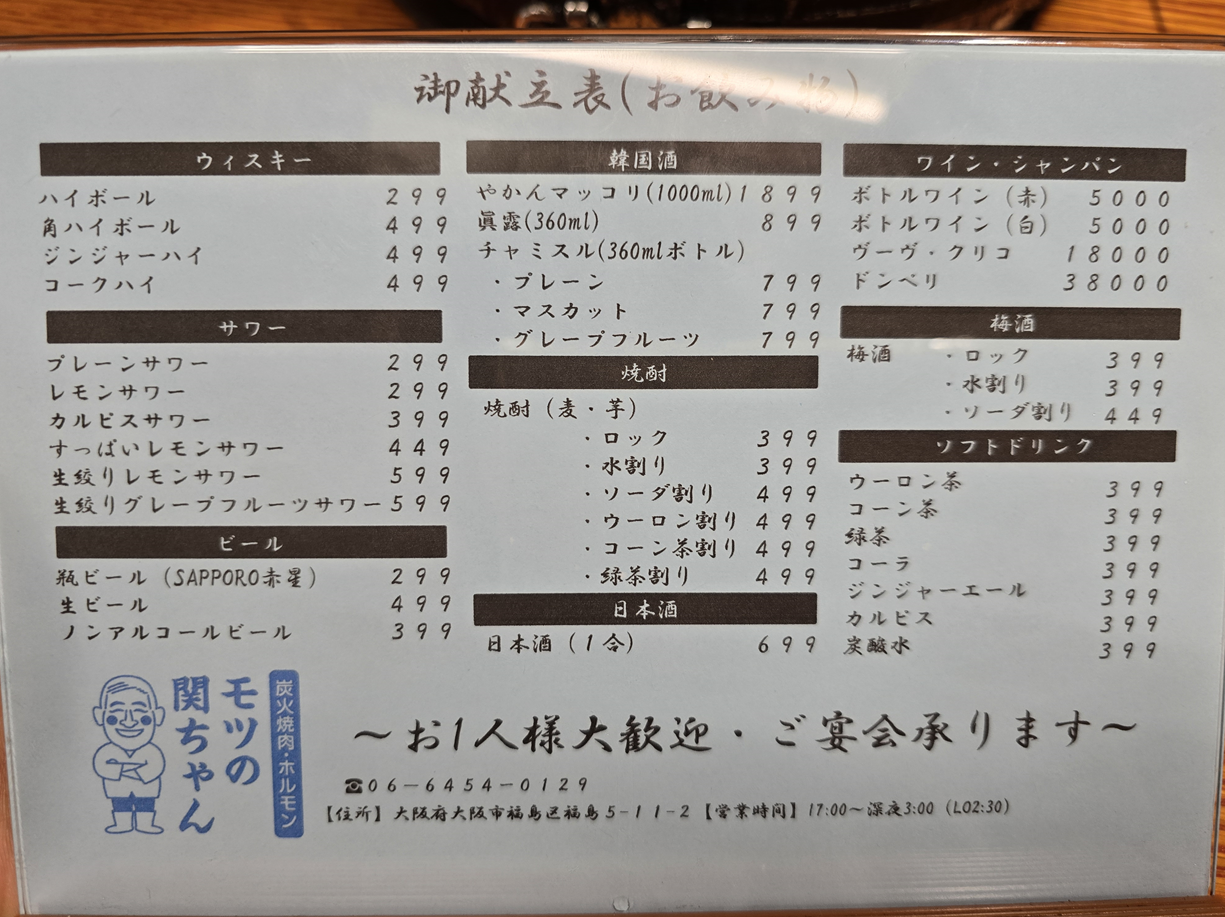 御献立表(お飲み物)
ウィスキー
ハイボール 299
角ハイボール 499
ジンジャーハイ 499
コークハイ 499
サワー
プレーンサワー 299
レモンサワー 299
カルピスサワー 399
すっぱいレモンサワー 449
生絞りレモンサワー 599
生絞りグレープフルーツサワー 599
ビール
瓶ビール（SAPPORO赤星） 299
生ビール 499
ノンアルコールビール 399
韓国酒
やかんマッコリ(1000ml) 1899
眞露(360ml) 899
チャミスル(360mlボトル)
・プレーン 799
・マスカット 799
・グレープフルーツ 799
焼酎
焼酎（麦・芋）
・ロック 399
・水割り 399
・ソーダ割り 499
・ウーロン割り 499
・コーン茶割り 499
・緑茶割り 499
日本酒
日本酒（1合） 699
ワイン・シャンパン
ボトルワイン（赤） 5000
ボトルワイン（白） 5000
ヴーヴ・クリコ 18000
ドンペリ 38000
梅酒
梅酒 ・ロック 399
・水割り 399
・ソーダ割り 449
ソフトドリンク
ウーロン茶 399
コーン茶 399
緑茶 399
コーラ 399
ジンジャーエール 399
カルピス 399
炭酸水 399
炭火焼肉・ホルモン
モツの
関ちゃん
～お1人様大歓迎・ご宴会承ります～
☎06－6454－0129
【住所】大阪府大阪市福島区福島5－11－2【営業時間】17:00～深夜3:00（LO2:30）